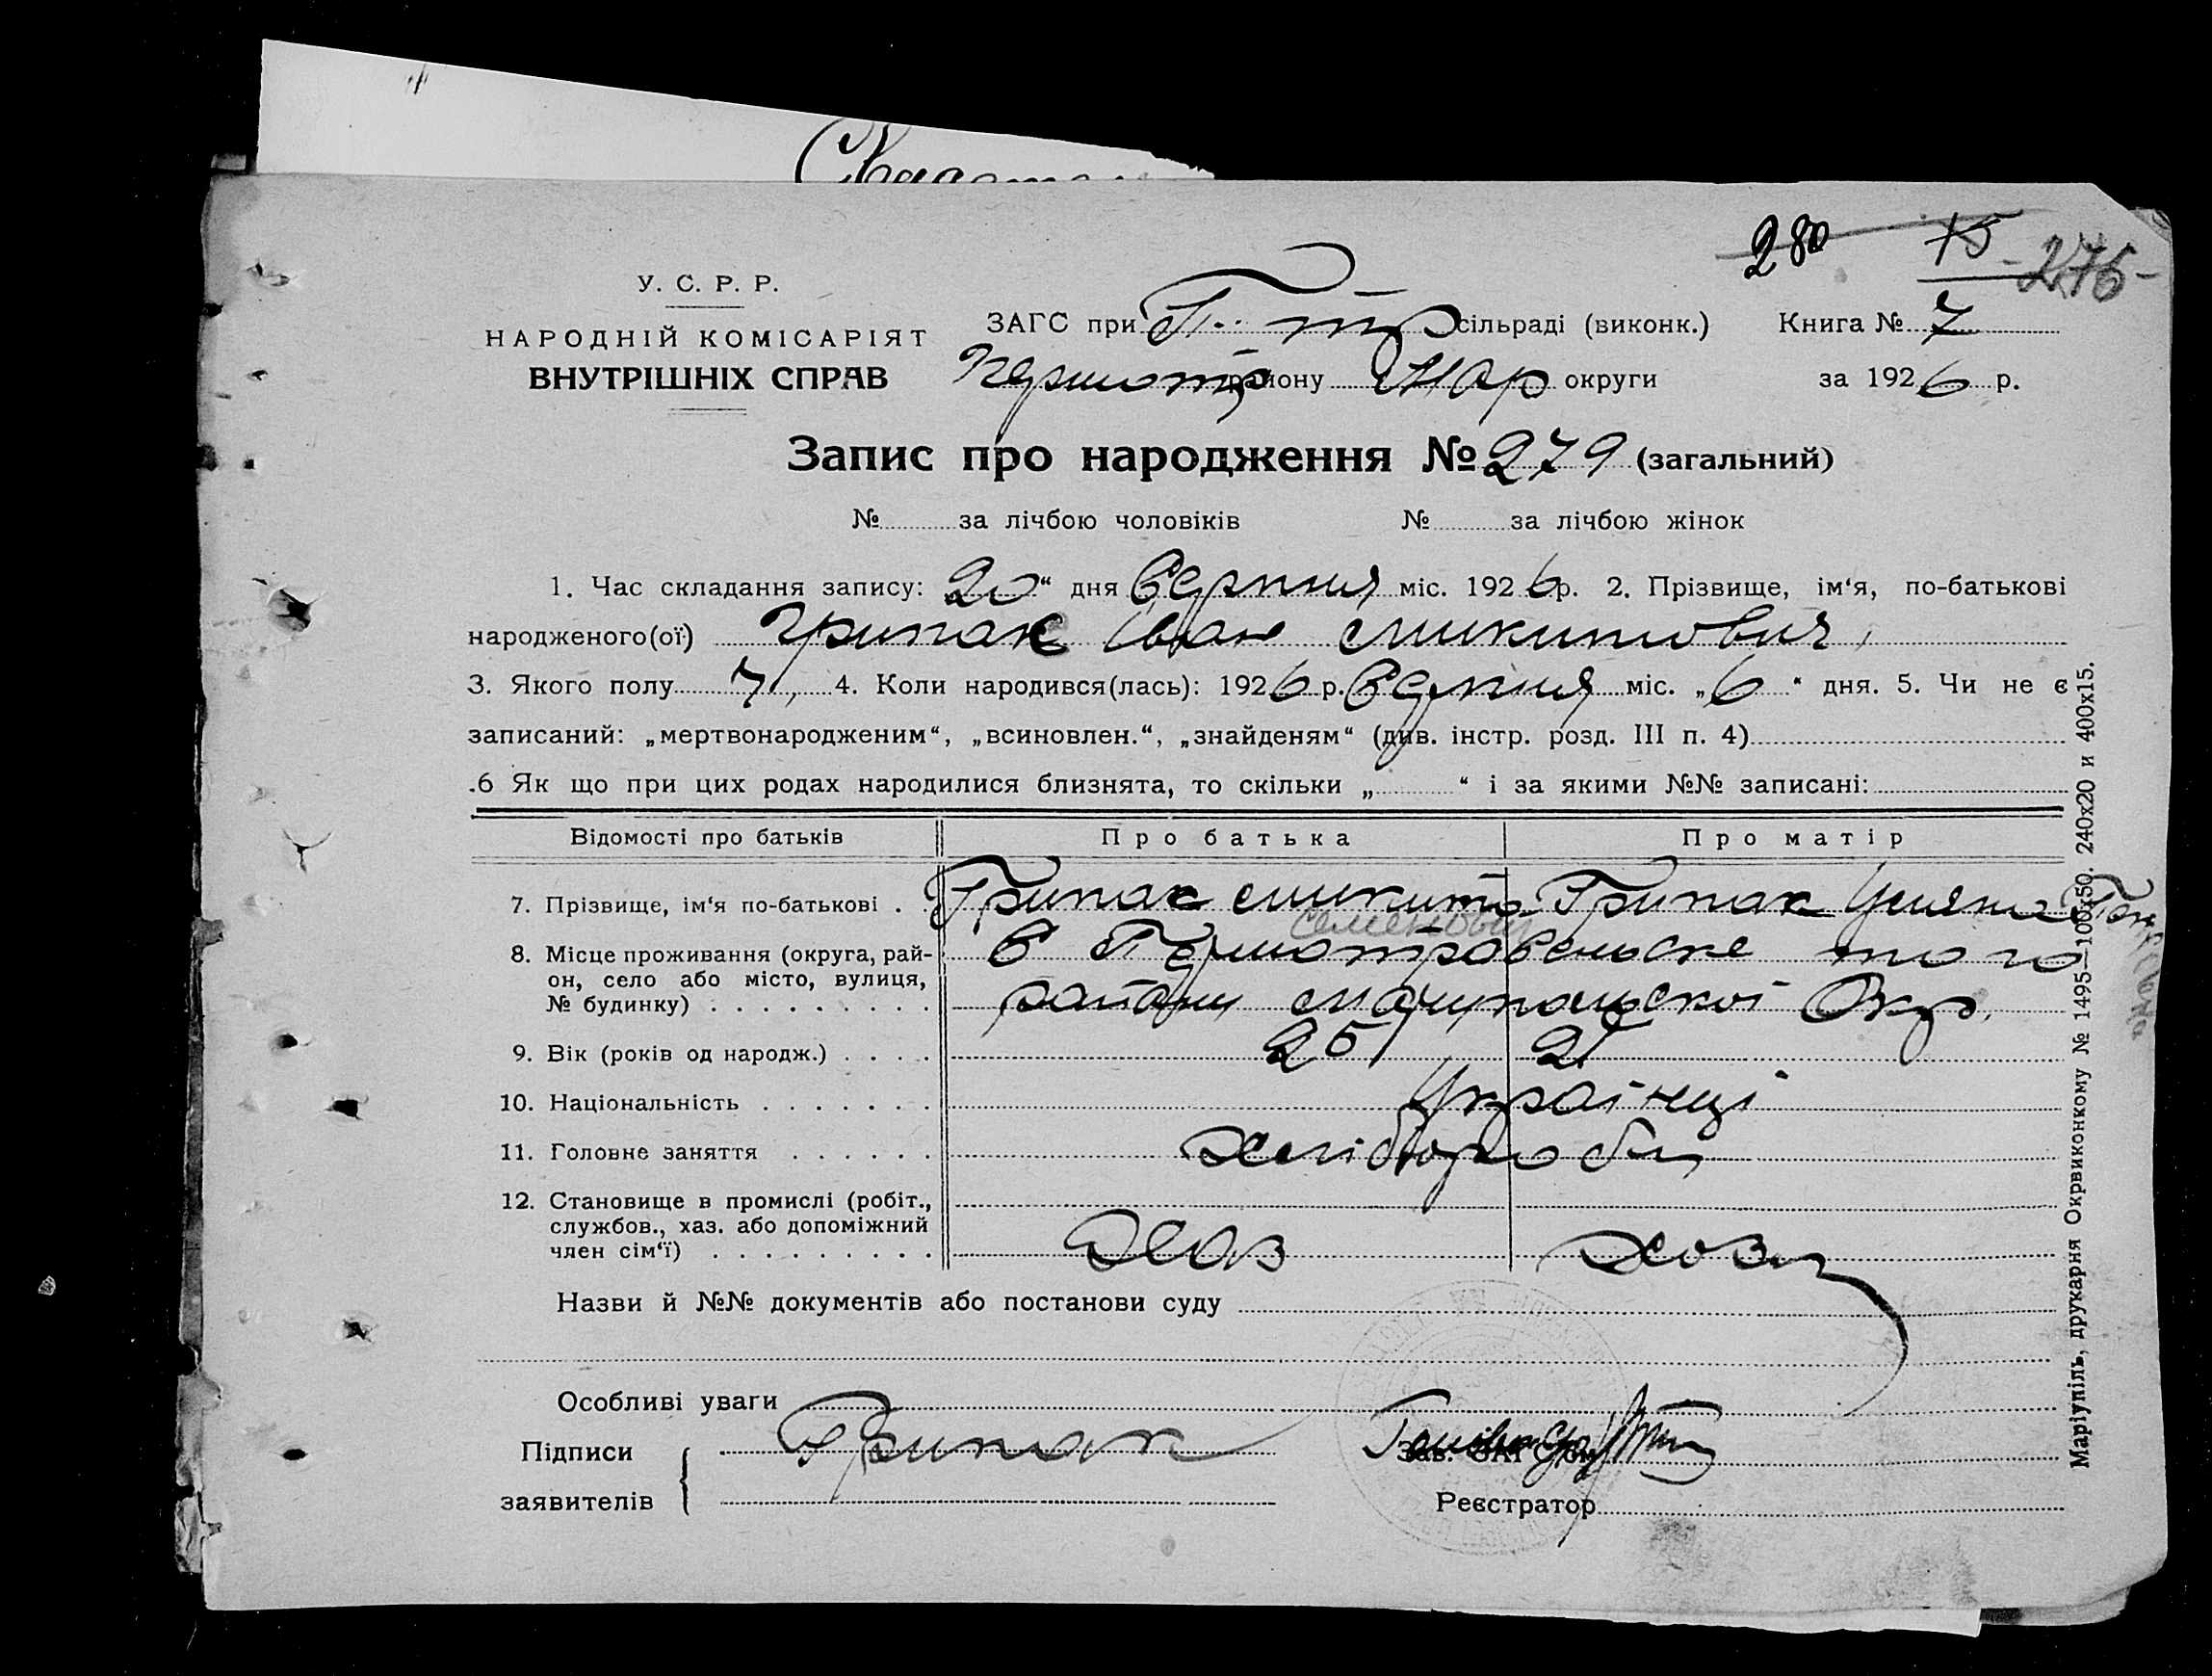 280 15 -276-
У. С. Р. Р.
НАРОДНІЙ КОМІСАРІЯТ
ВНУТРІШНІХ СПРАВ
ЗАГС при сільраді (виконк.) Книга № 7
Першотр району Мар округи за 1926 р.
Запис про народження № 279 (загальний)
№ за лічбою чоловіків № за лічбою жінок
1. Час складання запису: 20“ дня Серпня міс. 1926 р. 2. Прізвище, ім‘я, по-батькові
народженого(ої) Грипак Іван Микитович,
3. Якого полу ч, 4. Коли народився(лась): 1926 р. Серпня міс. „6“ дня. 5. Чи не є
записаний: „мертвонародженим“, „всиновлен.“, „знайденям“ (див. інстр. розд. III п. 4)
.6 Як що при цих родах народилися близнята, то скільки „ “ і за якими №№ записані:
Відомості про батьків Про батька Про матір
7. Прізвище, ім‘я по-батькові . Грипак Микита Семенович Грипак Уляна
8. Місце проживання (округа, рай-
он, село або місто, вулиця,
№ будинку) . . . . . . . . .
С Першотравеньске того
району Маріупольскої Окр.
9. Вік (років од народж.) . . . . 25 21
10. Національність . . . . . . . Українці
11. Головне заняття . . . . . . Хлібороби
12. Становище в промислі (робіт.,
службов., хаз. або допоміжний
член сім‘ї) . . . . . . . . . Хаз
Назви й №№ документів або постанови суду
Особливі уваги
Підписи
заявителів
Грипак
Зав. ЗАГС‘ом
Реєстратор
Маріупіль, друкарня Окрвиконкому № 1495—100х50. 240х20 и 400х15.